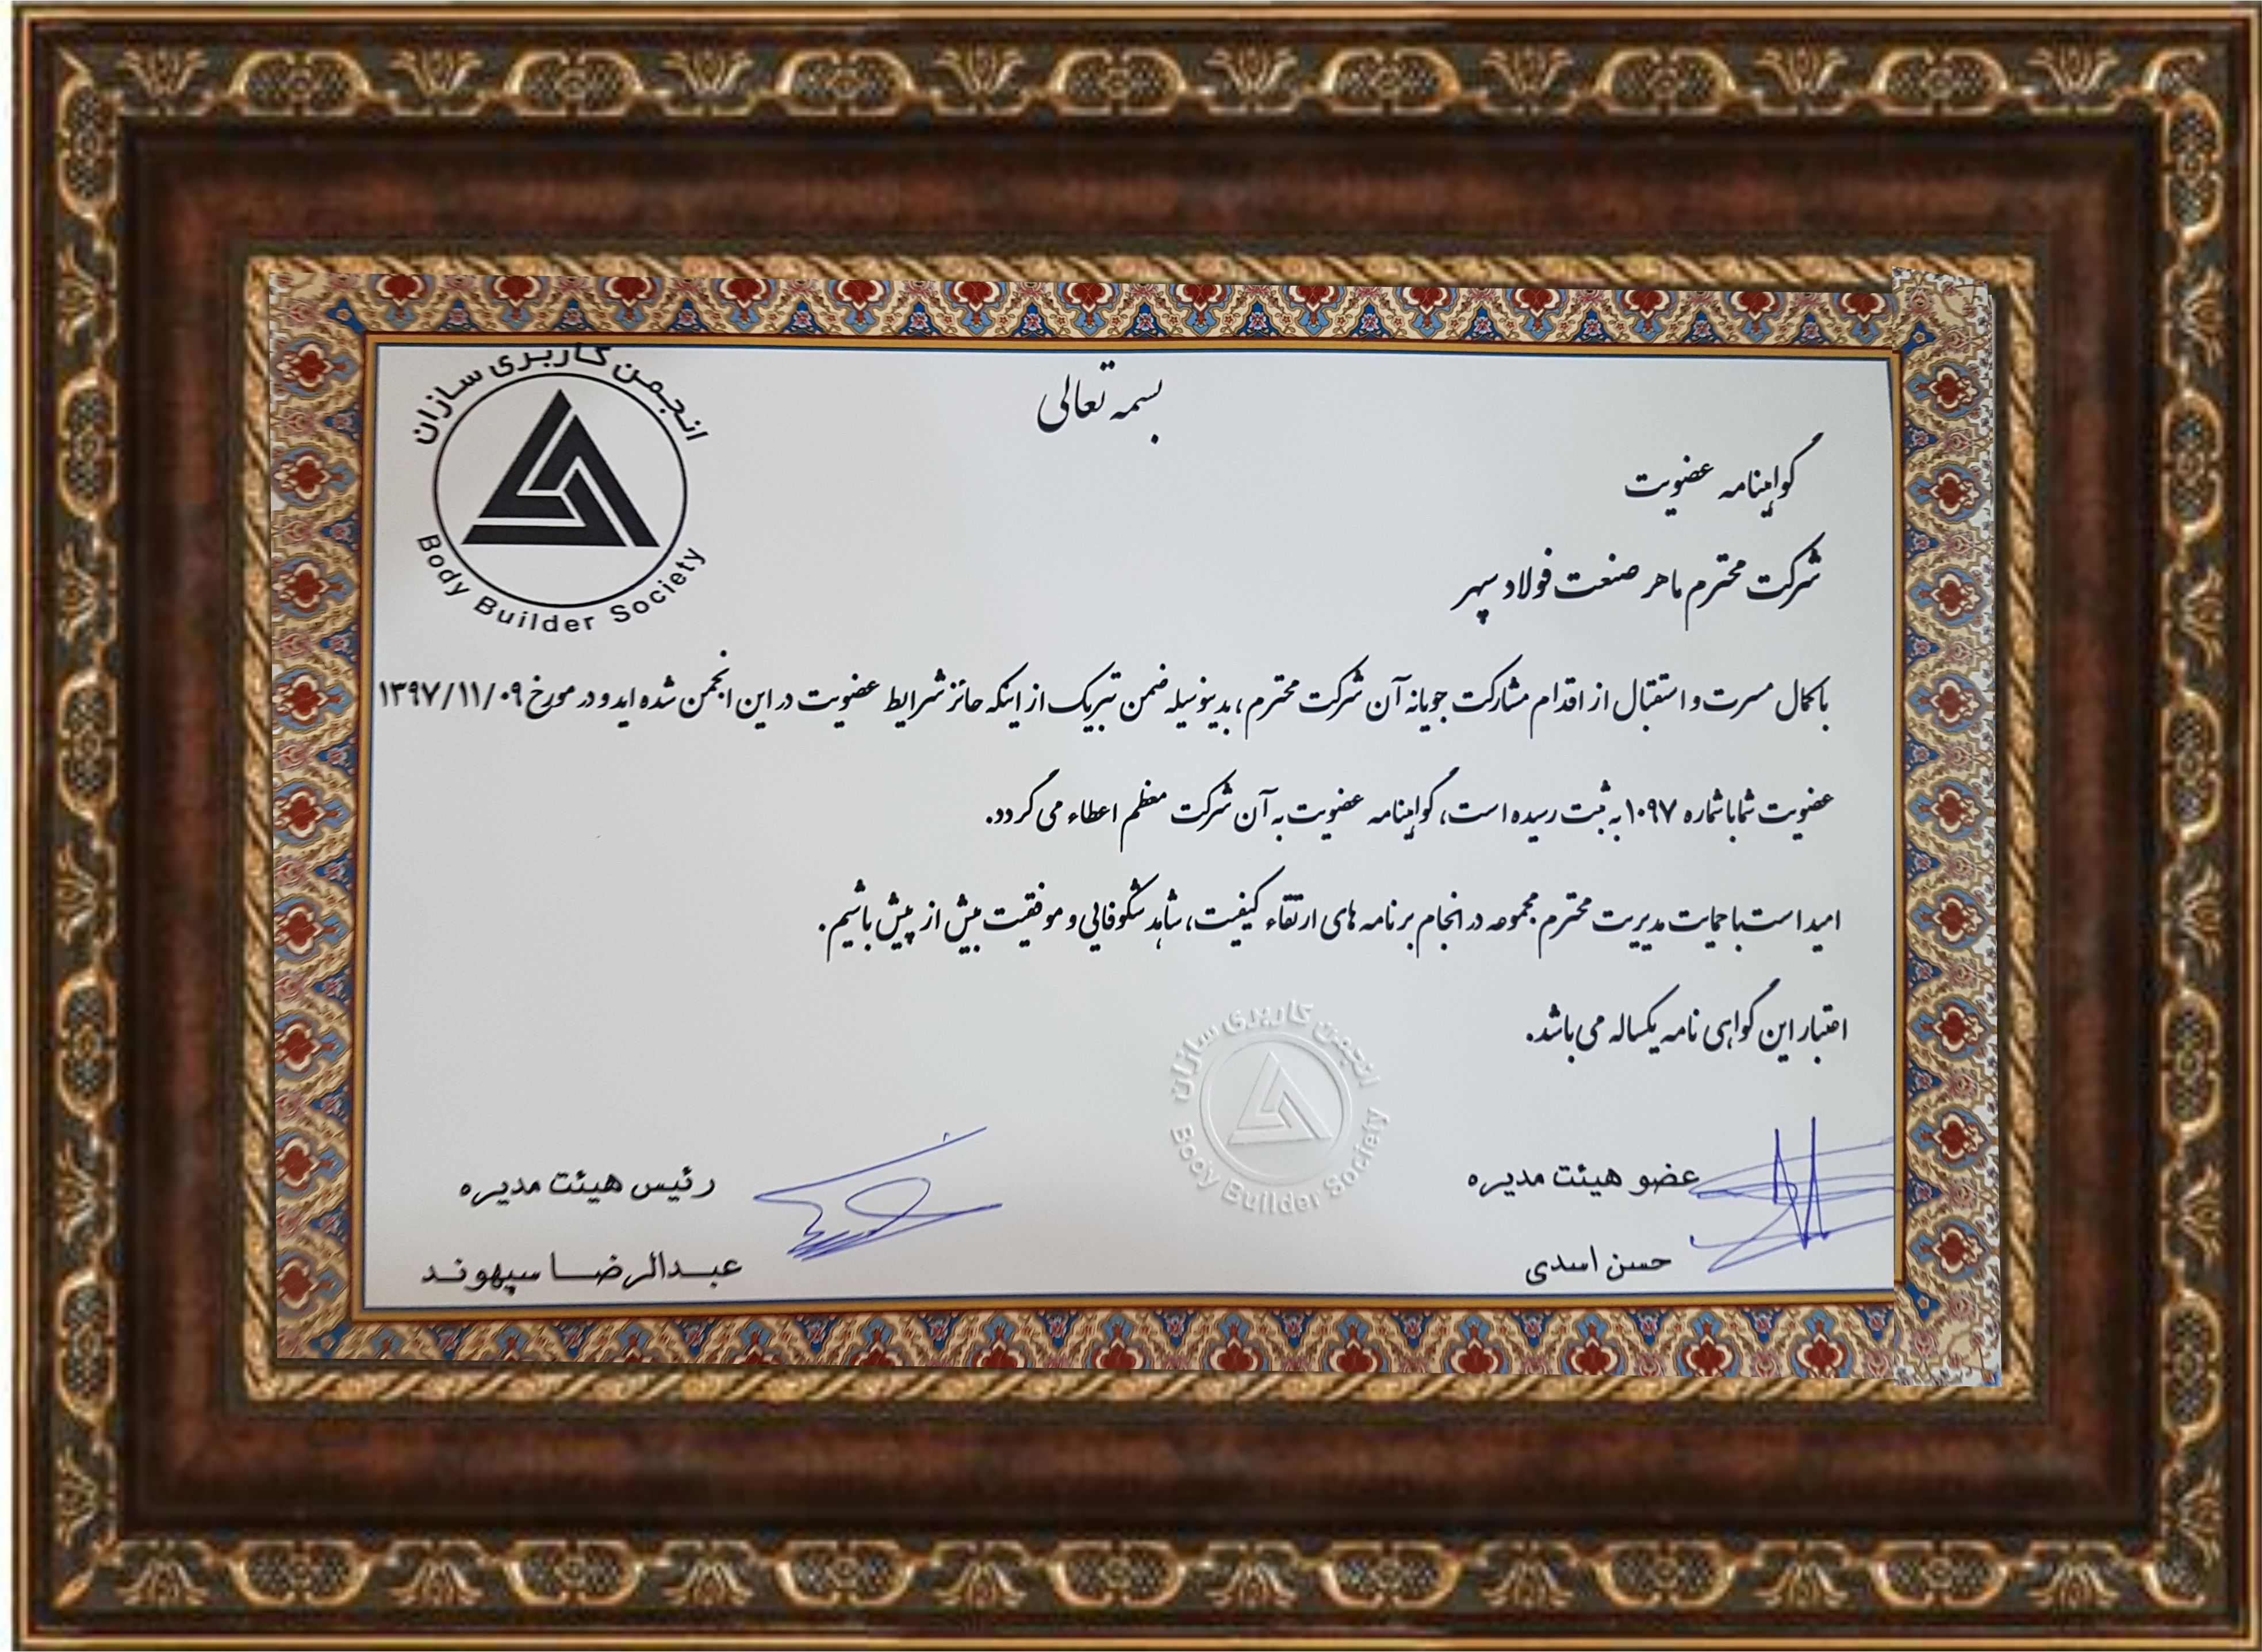 بسمه تعالی
انجمن کاربری سازان
Body Builder Society
گواهینامه عضویت
شرکت محترم ماهر صنعت فولاد سپهر
با کمال مسرت و استقبال از اقدام مشارکت جویانه آن شرکت محترم، بدینوسیله ضمن تبریک از اینکه حائز شرایط عضویت در این انجمن شده اید و در مورخ ۱۳۹۷/۱۱/۰۹
عضویت شما با شماره ۱۰۹۷ به ثبت رسیده است، گواهینامه عضویت به آن شرکت معظم اعطاء می گردد.
امید است با حمایت مدیریت محترم مجموعه در انجام برنامه های ارتقاء کیفیت، شاهد شکوفایی و موفقیت بیش از پیش باشیم.
اعتبار این گواهی نامه یکساله می باشد.
انجمن کاربری سازان
Body Builder Society
عضو هیئت مدیره
حسن اسدی
رئیس هیئت مدیره
عبدالرضا سپهوند